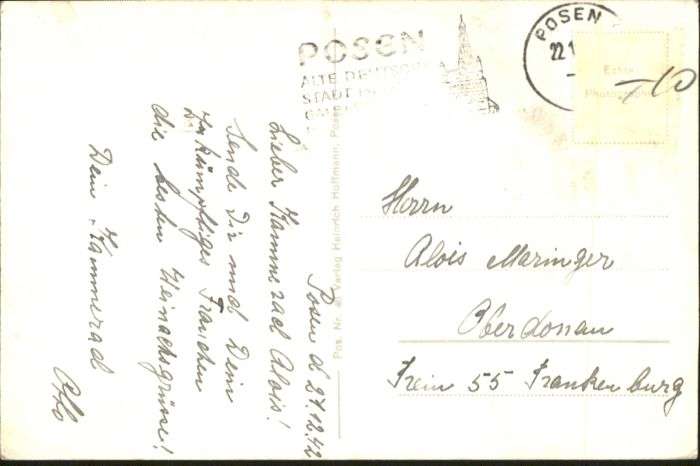 POSEN
ALTE DEUTSCHE
STADT
POSEN
22.1
Echte
Photographie
10
Posen d 27.12.42
Lieber Kammerad Alois!
Sende Dir und Dein
Zukümpftiges Frauchen
die besten Weinachsgrüsse!
Dein Kammerad
Otto
Verlag Heinrich Hoffmann, Posen
Herrn
Alois Maringer
Oberdonau
Frein 55 Frankenburg